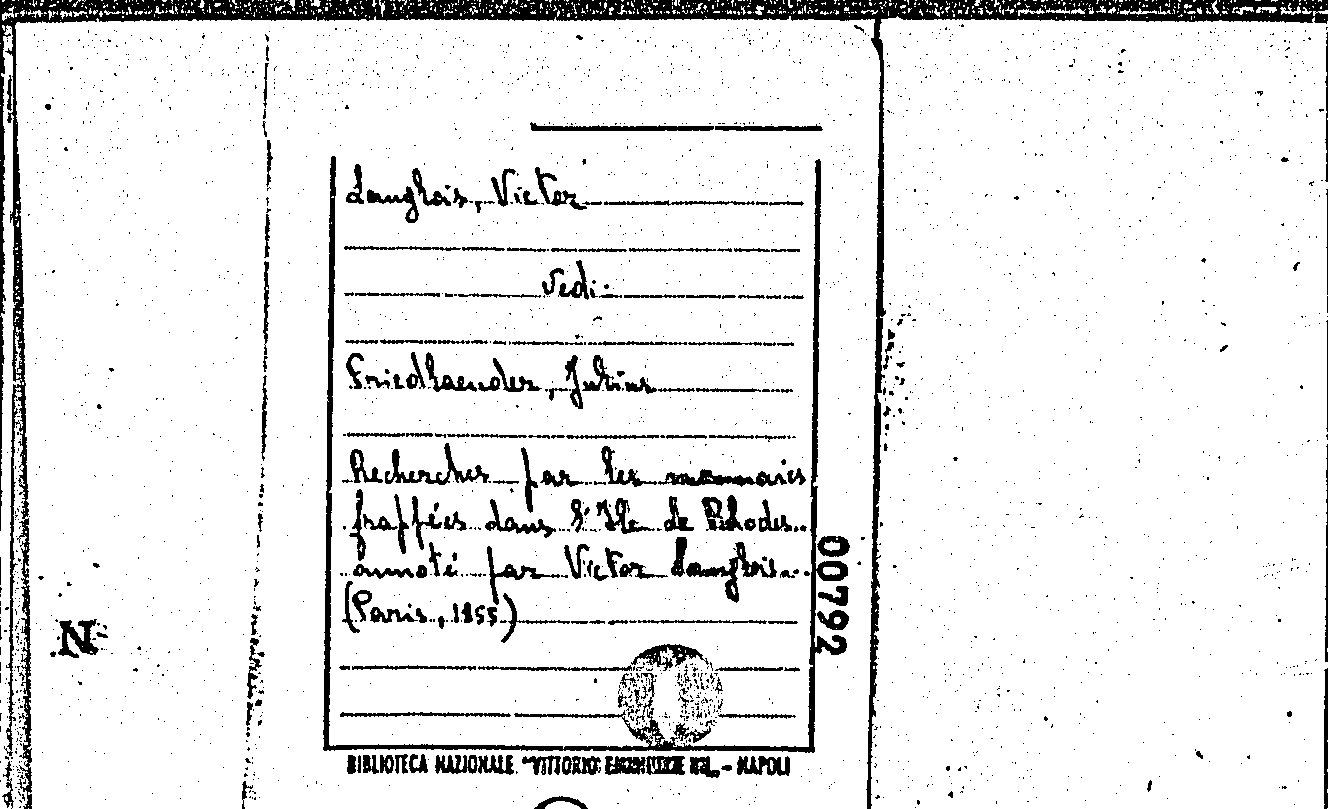 Langlois, Victor
Vedi:
Friedlaender, Julius
Recherches par les monnaies
frappées dans l'Ile de Rhodes..
annoté par Victor Langlois...
(Paris, 1855)
00792
N
BIBLIOTECA NAZIONALE "VITTORIO EMANUELE III" - NAPOLI